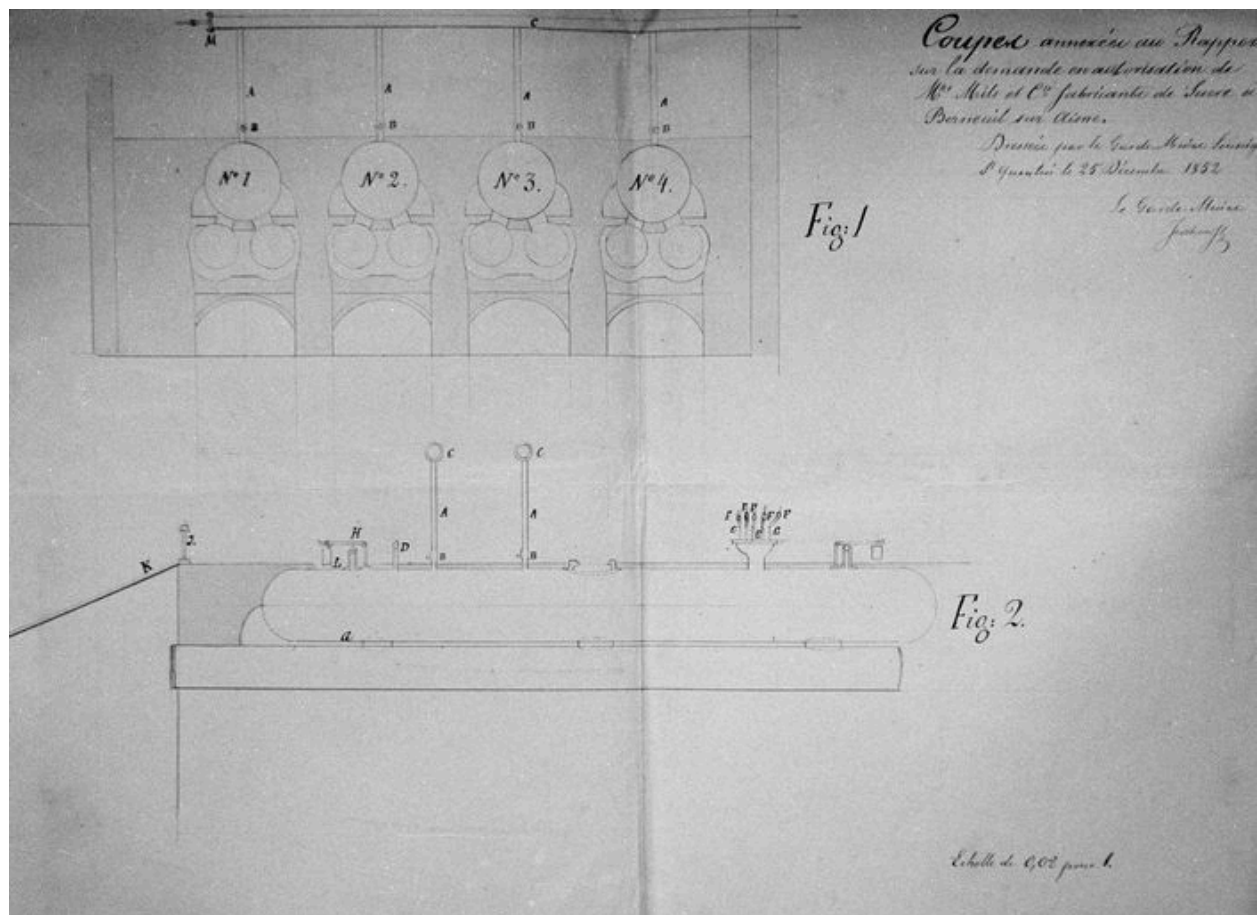 Coupes annexées au Rappor
sur la demande en autorisation de
Mrs et Cie fabricants de Sucre à
Berneuil sur Aisne.
Dressée par le Garde-Mine
St Quentin le 25 Décembre 1852
Le Garde-Mine
M
C
A
A
A
A
B
B
B
B
No 1
No 2.
No 3.
No 4.
Fig: 1
C
C
A
A
F
F
F
F
F
G
G
G
J
K
H
L
D
B
B
a
Fig: 2.
Echelle de 0,02 pour 1.